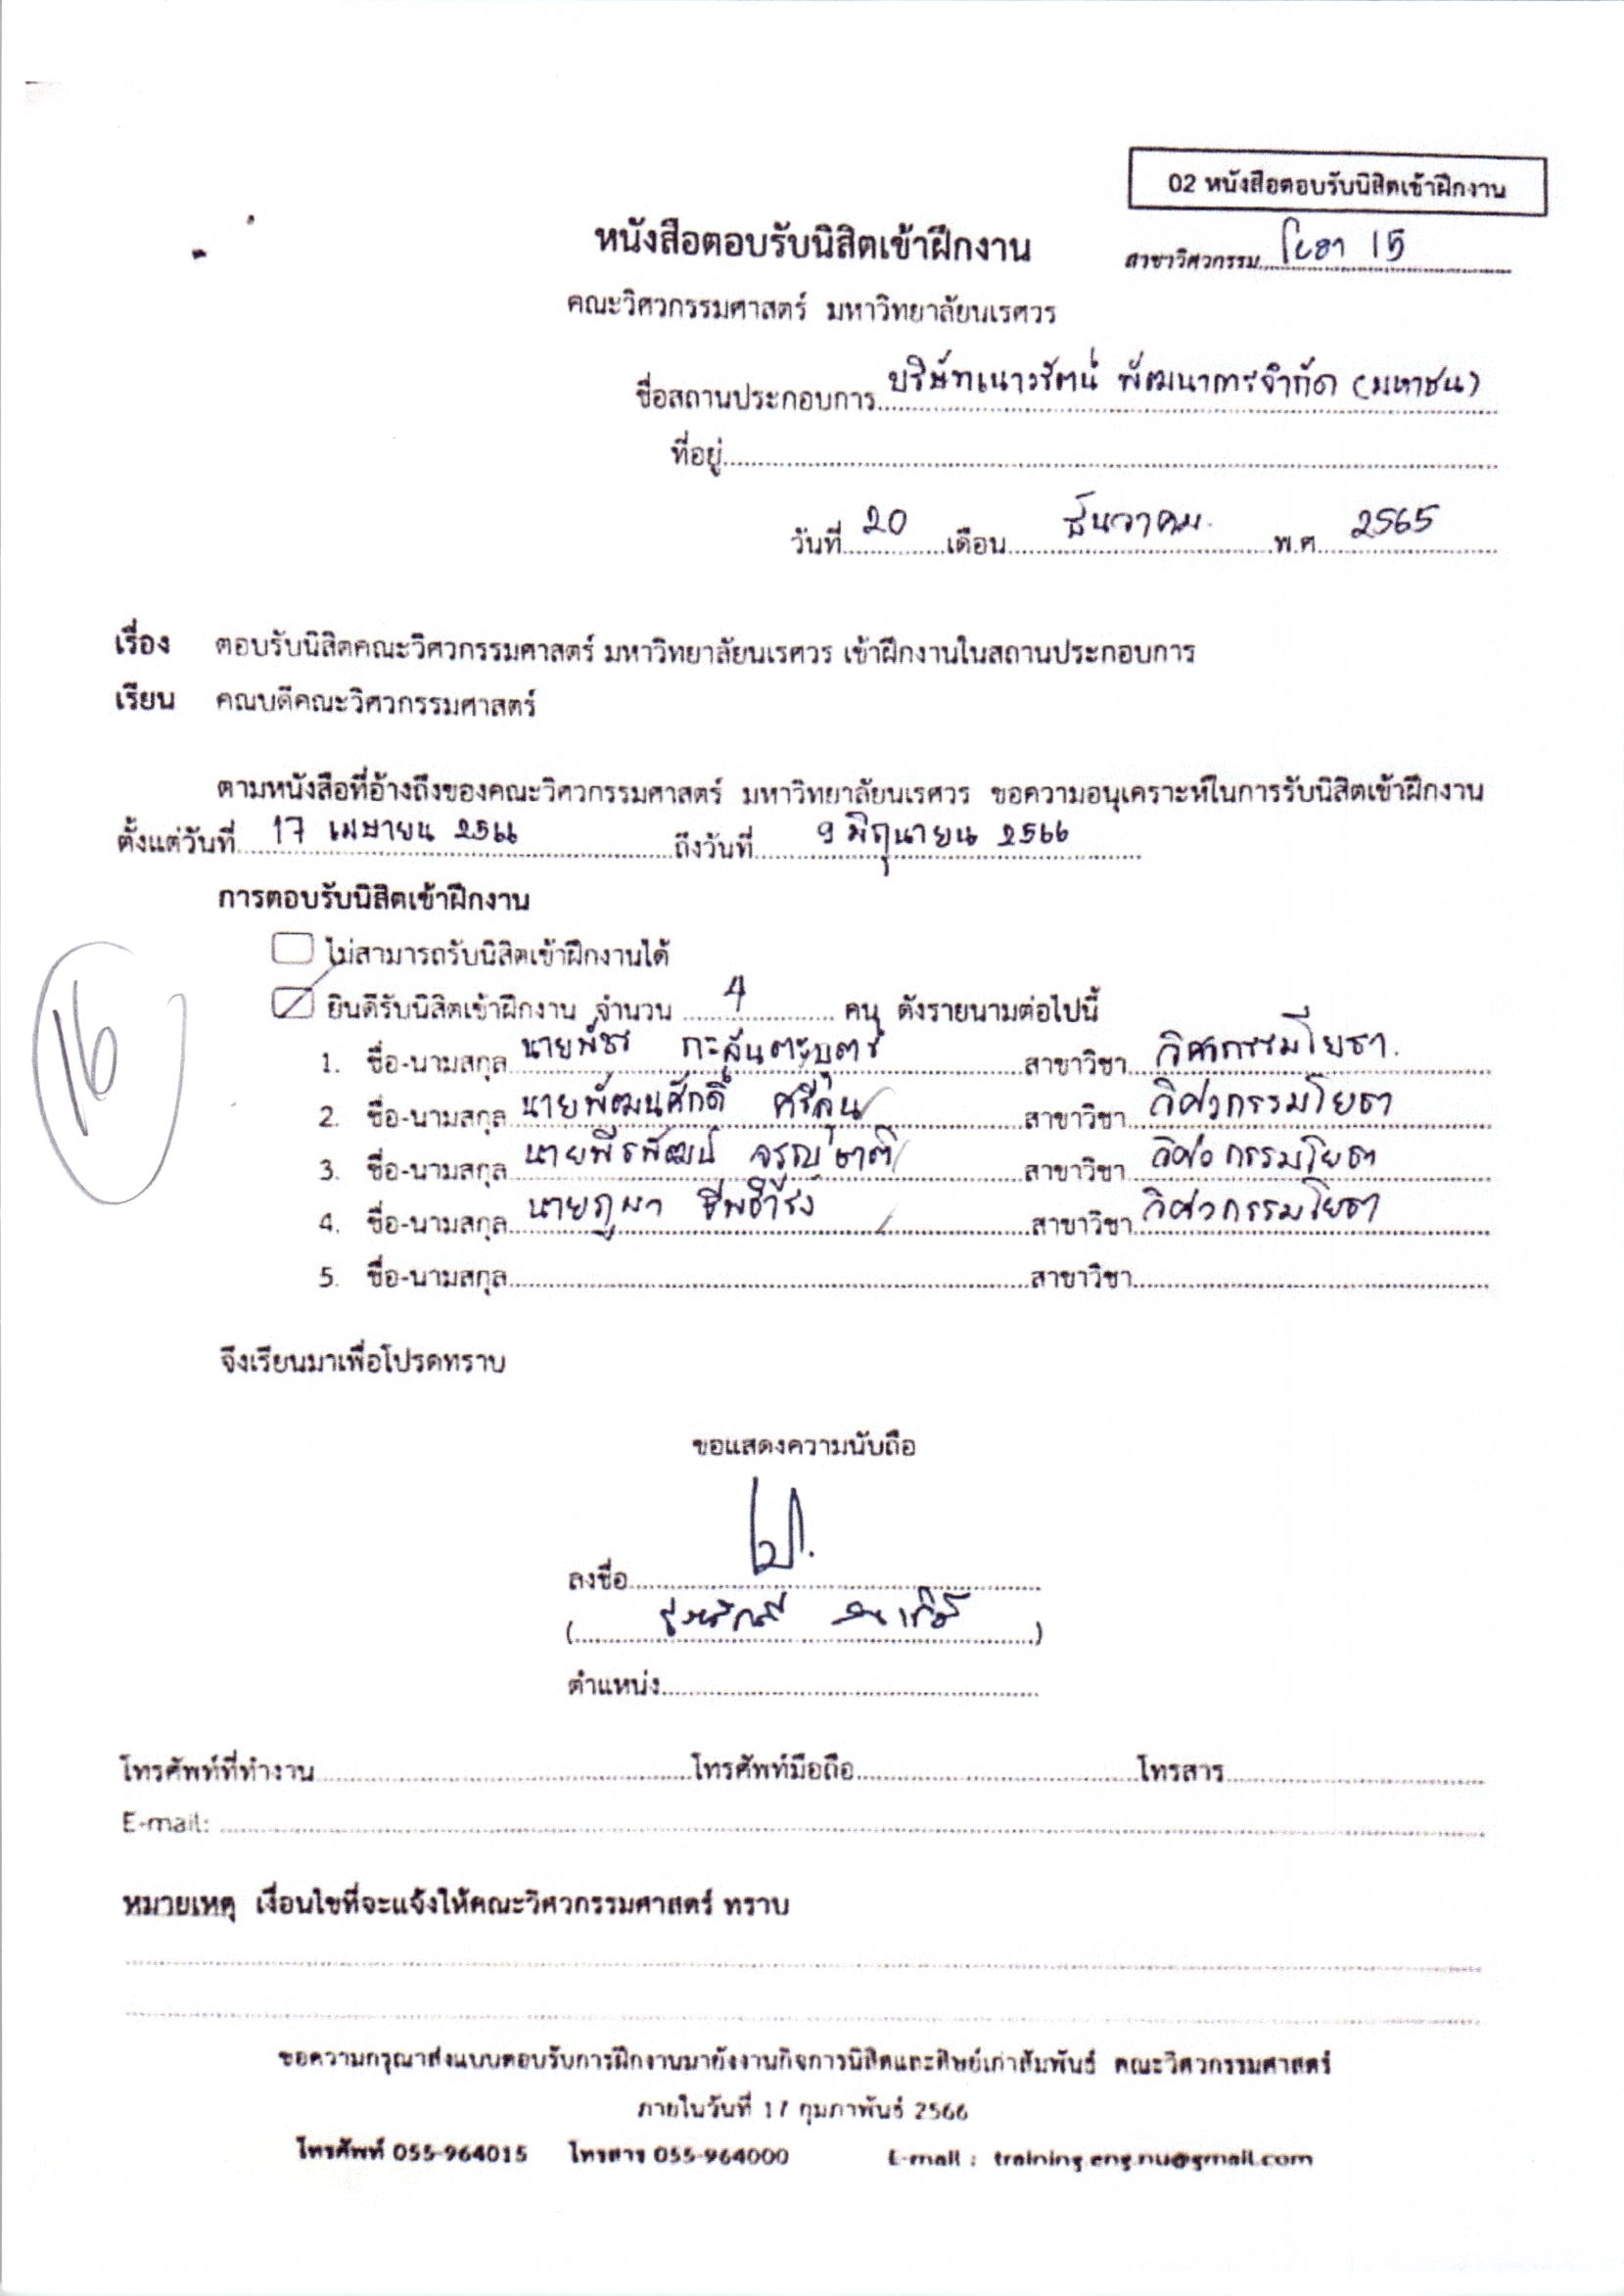 02 หนังสือตอบรับนิสิตเข้าฝึกงาน
หนังสือตอบรับนิสิตเข้าฝึกงาน
สาขาวิศวกรรม โยธา 15
คณะวิศวกรรมศาสตร์ มหาวิทยาลัยนเรศวร
ชื่อสถานประกอบการ บริษัทเนาวรัตน์ พัฒนาการจำกัด (มหาชน)
ที่อยู่
วันที่ 20 เดือน ธันวาคม. พ.ศ. 2565
เรื่อง ตอบรับนิสิตคณะวิศวกรรมศาสตร์ มหาวิทยาลัยนเรศวร เข้าฝึกงานในสถานประกอบการ
เรียน คณบดีคณะวิศวกรรมศาสตร์
ตามหนังสือที่อ้างถึงของคณะวิศวกรรมศาสตร์ มหาวิทยาลัยนเรศวร ขอความอนุเคราะห์ในการรับนิสิตเข้าฝึกงาน
ตั้งแต่วันที่ 17 เมษายน 2566 ถึงวันที่ 9 มิถุนายน 2566
การตอบรับนิสิตเข้าฝึกงาน
ไม่สามารถรับนิสิตเข้าฝึกงานได้
ยินดีรับนิสิตเข้าฝึกงาน จำนวน 4 คน ดังรายนามต่อไปนี้
16
1. ชื่อ-นามสกุล นายพัชร สาขาวิชา วิศวกรรมโยธา.
2. ชื่อ-นามสกุล นายพัฒนศักดิ์ ศรีลุน สาขาวิชา วิศวกรรมโยธา
3. ชื่อ-นามสกุล นายพีรพัฒน์ จรุญชาติ สาขาวิชา วิศวกรรมโยธา
4. ชื่อ-นามสกุล นายภูผา ชีพธำรง สาขาวิชา วิศวกรรมโยธา
5. ชื่อ-นามสกุล สาขาวิชา
จึงเรียนมาเพื่อโปรดทราบ
ขอแสดงความนับถือ
ลงชื่อ
ตำแหน่ง
โทรศัพท์ที่ทำงาน โทรศัพท์มือถือ โทรสาร
E-mail:
หมายเหตุ เงื่อนไขที่จะแจ้งให้คณะวิศวกรรมศาสตร์ ทราบ
ขอความกรุณาส่งแบบตอบรับการฝึกงานมายังงานกิจการนิสิตและศิษย์เก่าสัมพันธ์ คณะวิศวกรรมศาสตร์
ภายในวันที่ 17 กุมภาพันธ์ 2566
โทรศัพท์ 055-964015 โทรสาร 055-964000 E-mail : training.eng.nu@gmail.com